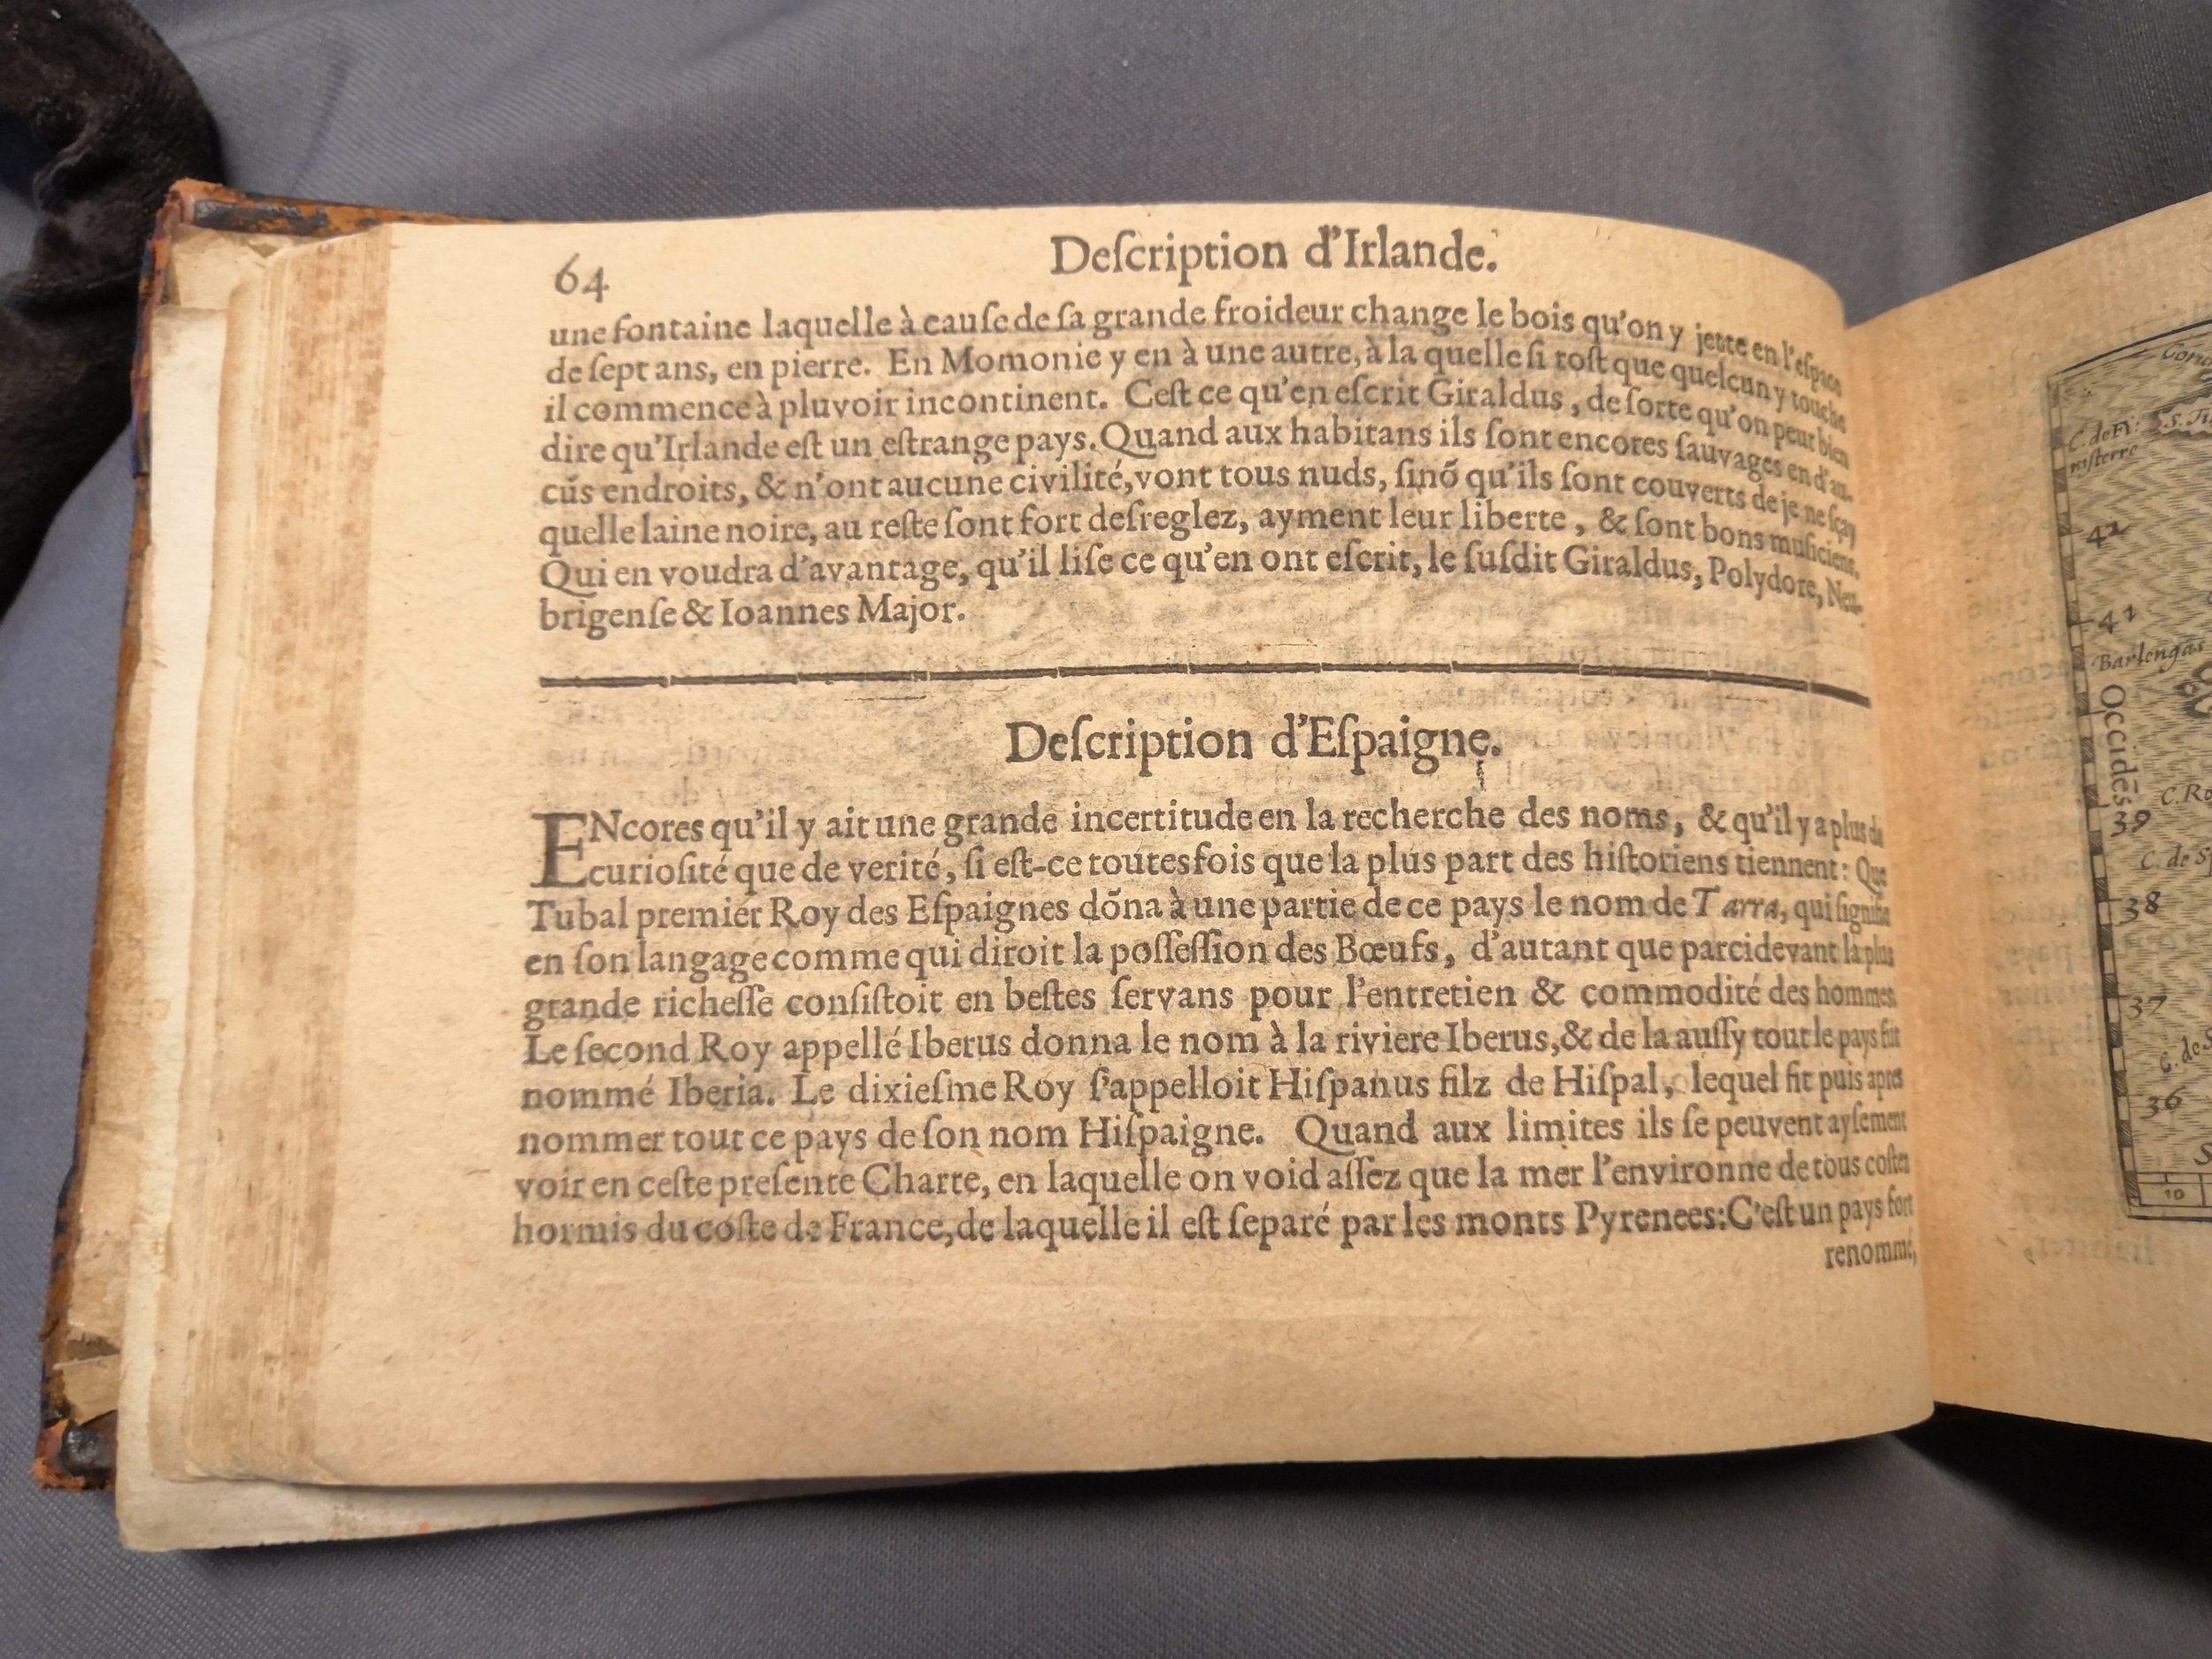 64
Deſcription d'Irlande.
une fontaine laquelle à cauſe de ſa grande froideur change le bois qu'on y jette en l'eſpace
de ſept ans, en pierre. En Momonie y en à une autre, à la quelle ſi toſt que quelcun y touche
il commence à pluvoir incontinent. Ceſt ce qu'en eſcrit Giraldus, de ſorte qu'on peut bien
dire qu'Irlande eſt un eſtrange pays. Quand aux habitans ils ſont encores ſauvages en d'au-
cũs endroits, & n'ont aucune civilité, vont tous nuds, ſinõ qu'ils ſont couverts de je ne ſçay
quelle laine noire, au reſte ſont fort deſreglez, ayment leur liberte, & ſont bons muſiciens.
Qui en voudra d'avantage, qu'il liſe ce qu'en ont eſcrit, le ſuſdit Giraldus, Polydore, Neu-
brigenſe & Ioannes Major.
Deſcription d'Eſpaigne.
ENcores qu'il y ait une grande incertitude en la recherche des noms, & qu'il y a plus de
curioſité que de verité, ſi eſt-ce toutesfois que la plus part des hiſtoriens tiennent: Que
Tubal premier Roy des Eſpaignes dõna à une partie de ce pays le nom de Tarra, qui ſignifie
en ſon langage comme qui diroit la poſſeſſion des Bœufs, d'autant que parcidevant la plus
grande richeſſe conſiſtoit en beſtes ſervans pour l'entretien & commodité des hommes
Le ſecond Roy appellé Iberus donna le nom à la riviere Iberus, & de la auſſy tout le pays fut
nommé Iberia. Le dixieſme Roy ſ'appelloit Hiſpanus filz de Hiſpal, lequel fit puis apres
nommer tout ce pays de ſon nom Hiſpaigne. Quand aux limites ils ſe peuvent ayſement
voir en ceſte preſente Charte, en laquelle on void aſſez que la mer l'environne de tous coſtez
hormis du coſte de France, de laquelle il eſt ſeparé par les monts Pyrenees: C'eſt un pays fort
renommé,
C. de Fi-
nisterre
42
41
Barlengas
Occidẽs
39
38
37
36
10